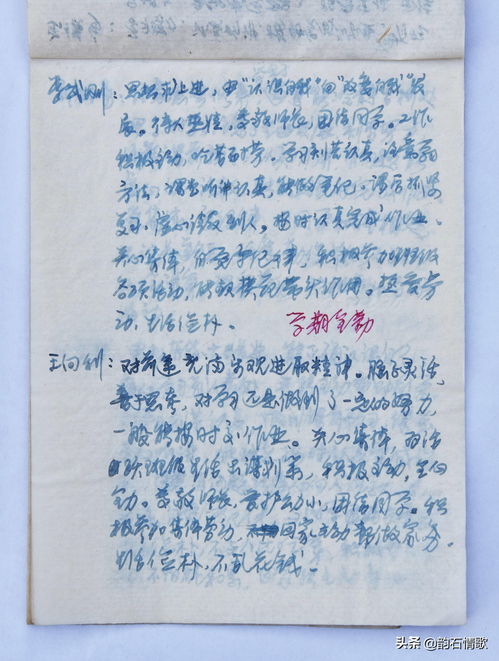 李武刚：思想求上进，由“认识自我”向“改变自我”发
展。待人正直，尊敬师长，团结同学。工作
积极主动，吃苦耐劳。学习刻苦认真，注意学习
方法，课堂听讲认真，能做笔记。课后抓紧
复习，虚心请教别人。按时认真完成作业。
关心集体，自觉守纪律，积极参加班级
各项活动，能起模范带头作用。热爱劳
动，生活俭朴。
学期全勤
王向利：对前途充满乐观进取精神。脑子灵活，
善于思考，对学习无息做到了一定的努力，
一般能按时交作业。关心集体，为活
跃班级生活出谋划策，积极主动，全心
全力。尊敬师长，爱护幼小，团结同学。积
极参加集体劳动，回家主动帮做家务。
生活俭朴，不乱花钱。
头条 @韵石情歌